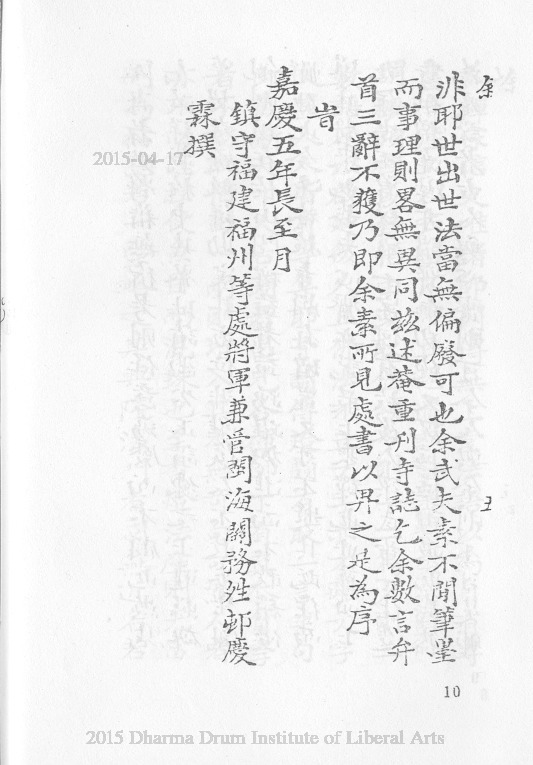 余
非耶世出世法當無偏廢可也余武夫素不閒筆墨
而事理則畧無異同茲述菴重刊寺誌乞余數言弁
首三辭不獲乃即余素所見處書以畀之是為序
旹
嘉慶五年長至月
鎮守福建福州等處將軍兼管閩海關務姓邨慶
霖撰
2015-04-17
10
2015 Dharma Drum Institute of Liberal Arts